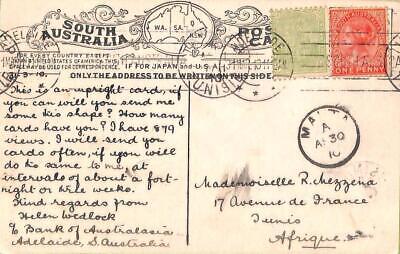 SOUTH
AUSTRALIA
WA.
SA.
NSW
FOR EVERY COUNTRY EXCEPT
JAPAN & UNITED STATES OF AMERICA. THIS
MAY BE USED FOR CORRESPONDENCE.
IF FOR JAPAN and U.S.A
ONLY THE ADDRESS TO BE WRITTEN ON THIS SIDE
ONE PENNY
3-10.
This is an upright card, if
you can will you send me
some its shape? How many
cards have you? I have 879
views. I will send you
cards often, if you will
do his same to me, at
intervals of about a fort-
night or three weeks.
Kind regards from
Helen Wedlock
c/o Bank of Australasia
Adelaide, S. Australia
TUNIS
MALTA
A
AP 30
10
Mademoiselle R. Mezzena
17 Avenue de France
Tunis
Afrique.